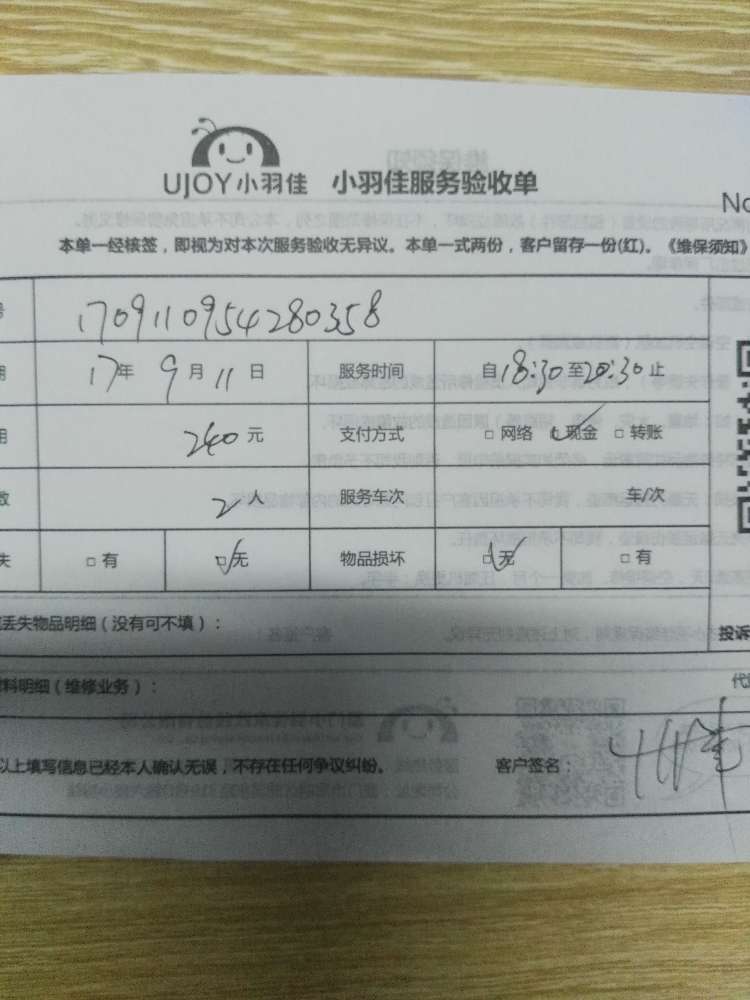 UJOY小羽佳 小羽佳服务验收单
No
本单一经核签，即视为对本次服务验收无异议。本单一式两份，客户留存一份(红)。《维保须知》
号 1709110954280358
期 17年 9月 11日 服务时间 自18:30至20:30止
用 240元 支付方式 □ 网络 □ 现金 □ 转账
数 2人 服务车次 车/次
失 □ 有 □ 无 物品损坏 □ 无 □ 有
丢失物品明细（没有可不填）： 投诉
材料明细（维修业务）：
以上填写信息已经本人确认无误，不存在任何争议纠纷。 客户签名：